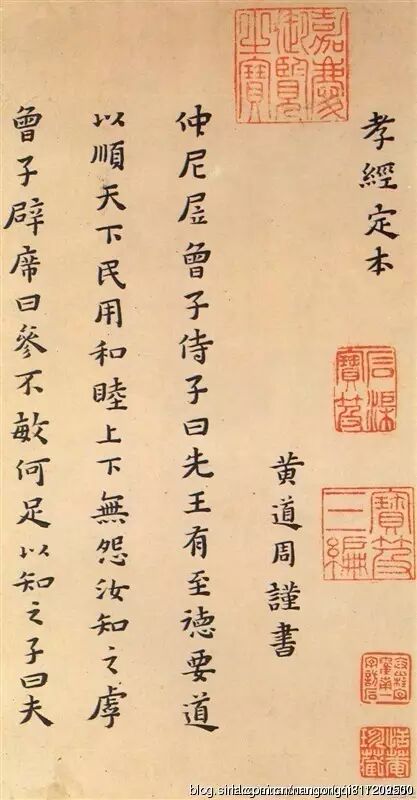 孝經定本
嘉慶御覽之寶
石渠寶笈
寶笈三編
黄道周謹書
仲尼曾子侍子曰先王有至徳要道
以順天下民用和睦上下無怨汝知之虖
曾子辟席曰參不敏何足以知之子曰夫